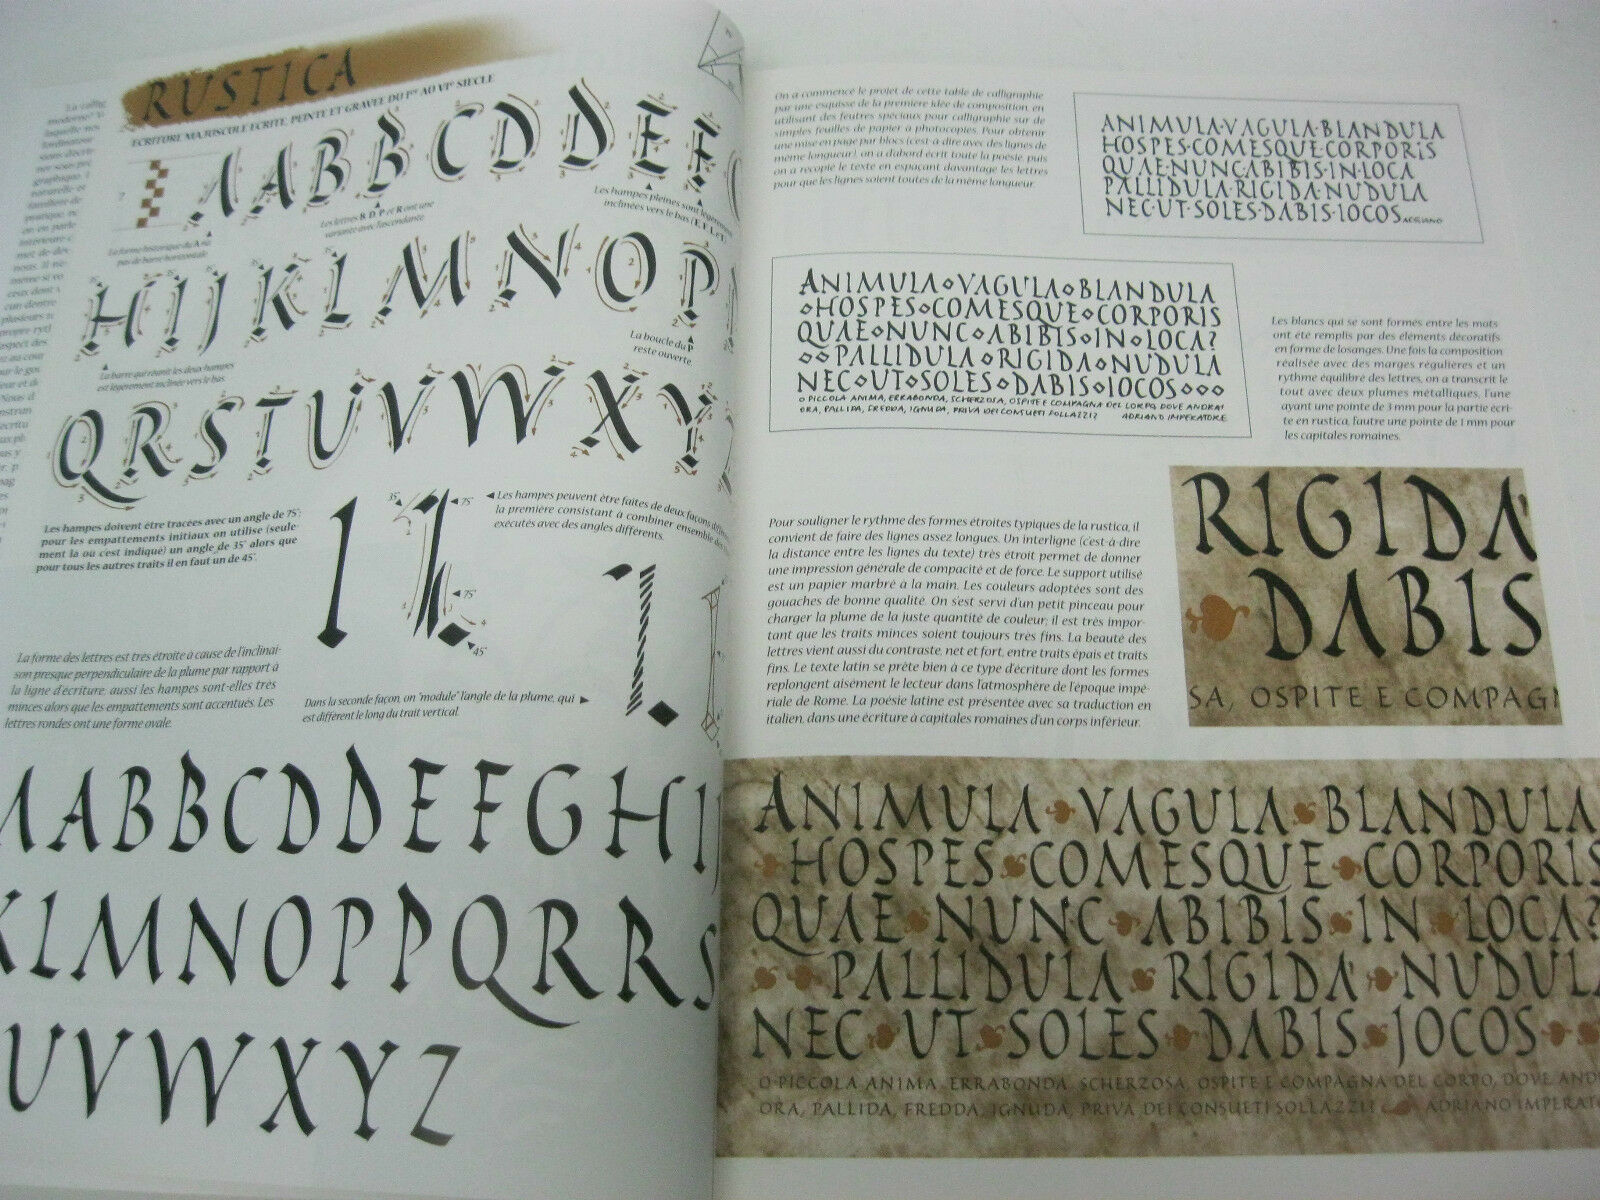 RUSTICA
ECRITURE MAJUSCULE ECRITE, PEINTE ET GRAVEE DU Ier AU VIe SIECLE
7
A A B B C D D E F
La forme historique du A n'a
pas de barre horizontale
Les lettres B, D, P et R ont une
variante avec l'ascendante
Les hampes pleines sont légèrement
inclinées vers le bas (E, F, L et T)
H I J K L M N O P
La barre qui réunit les deux hampes
est légèrement inclinée vers le bas.
La boucle du P
reste ouverte
Q R S T U V W X Y
Les hampes doivent être tracées avec un angle de 75°;
pour les empattements initiaux on utilise (seule-
ment là ou c'est indiqué) un angle de 35° alors que
pour tous les autres traits il en faut un de 45°.
35°
75°
75°
45°
Les hampes peuvent être faites de deux façons
la première consistant à combiner ensemble
exécutés avec des angles différents.
La forme des lettres est très étroite à cause de l'inclinai-
son presque perpendiculaire de la plume par rapport à
la ligne d'écriture, aussi les hampes sont-elles très
minces alors que les empattements sont accentués. Les
lettres rondes ont une forme ovale.
Dans la seconde façon, on "module" l'angle de la plume, qui
est différent le long du trait vertical.
A A B B C D D E F G H I
K L M N O P P Q R R S
U V W X Y Z
On a commencé le projet de cette table de calligraphie
par une esquisse de la première idée de composition, en
utilisant des feutres spéciaux pour calligraphie sur de
simples feuilles de papier à photocopies. Pour obtenir
une mise en page par blocs (c'est-à-dire avec des lignes de
même longueur), on a d'abord écrit toute la poésie, puis
on a recopié le texte en espaçant davantage les lettres
pour que les lignes soient toutes de la même longueur.
ANIMULA·VAGULA·BLANDULA
HOSPES·COMESQUE·CORPORIS
QUAE·NUNCABIBIS·IN·LOCA
PALLIDULA·RIGIDA·NUDULA
NEC·UT·SOLES·DABIS·IOCOS ADRIANO
ANIMULA⋄VAGULA⋄BLANDULA
⋄HOSPES⋄COMESQUE⋄CORPORIS
QUAE⋄NUNC⋄ABIBIS⋄IN⋄LOCA?
⋄⋄PALLIDULA⋄RIGIDA⋄NUDULA
NEC⋄UT⋄SOLES⋄DABIS⋄IOCOS⋄⋄⋄
O PICCOLA ANIMA, ERRABONDA, SCHERZOSA, OSPITE E COMPAGNA DEL CORPO, DOVE ANDRAI
ORA, PALLIDA, FREDDA, IGNUDA, PRIVA DEI CONSUETI SOLLAZZI? ADRIANO IMPERATORE
Les blancs qui se sont formés entre les mots
ont été remplis par des éléments décoratifs
en forme de losanges. Une fois la composition
réalisée avec des marges régulières et un
rythme équilibré des lettres, on a transcrit le
tout avec deux plumes métalliques, l'une
ayant une pointe de 3 mm pour la partie écri-
te en rustica, l'autre une pointe de 1 mm pour
les capitales romaines.
Pour souligner le rythme des formes étroites typiques de la rustica, il
convient de faire des lignes assez longues. Un interligne (c'est-à-dire
la distance entre les lignes du texte) très étroit permet de donner
une impression générale de compacité et de force. Le support utilisé
est un papier marbré à la main. Les couleurs adoptées sont des
gouaches de bonne qualité. On s'est servi d'un petit pinceau pour
charger la plume de la juste quantité de couleur; il est très impor-
tant que les traits minces soient toujours très fins. La beauté des
lettres vient aussi du contraste, net et fort, entre traits épais et traits
fins. Le texte latin se prête bien à ce type d'écriture dont les formes
replongent aisément le lecteur dans l'atmosphère de l'époque impé-
riale de Rome. La poésie latine est présentée avec sa traduction en
italien, dans une écriture à capitales romaines d'un corps inférieur.
RIGIDA
DABIS
SA, OSPITE E COMPAGN
ANIMULA VAGULA BLANDULA
HOSPES COMESQUE CORPORIS
QUAE NUNC ABIBIS IN LOCA?
PALLIDULA RIGIDA NUDULA
NEC UT SOLES DABIS JOCOS
O PICCOLA ANIMA, ERRABONDA, SCHERZOSA, OSPITE E COMPAGNA DEL CORPO, DOVE AND
ORA, PALLIDA, FREDDA, IGNUDA, PRIVA DEI CONSUETI SOLLAZZI? ADRIANO IMPERATO